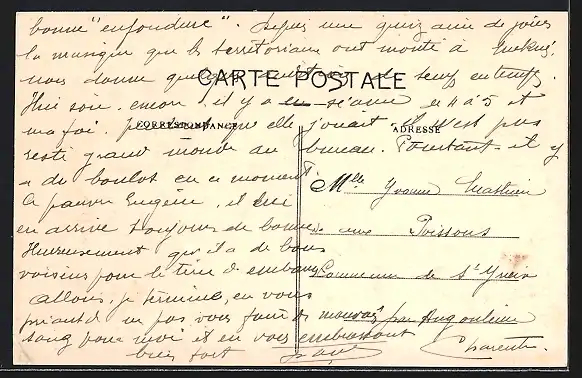 bonne "enfondure". Depuis une quinzaine de jours
la musique que les territoriaux ont monté à
nous donne quelques de temps en temps.
Hier soir, encore, il y a eu séance de 4 à 5 et
CARTE POSTALE
ma foi, pendant qu'elle jouait il n'est pas
CORRESPONDANCE
ADRESSE
resté grand monde au bureau. Pourtant il y
a du boulot en ce moment
Ce pauvre Eugène, il lui
en arrive toujours de bonnes.
Heureusement qu'il a de bons
voisins pour le tirer d'embarras
Allons, je termine, en vous
priant de ne pas vous faire de mauvais
sang pour moi et en vous embrassant
bien fort
Mlle Yvonne Mathieu
aux Poissons
Commune de St Yrieix
par Angoulême
Charente.